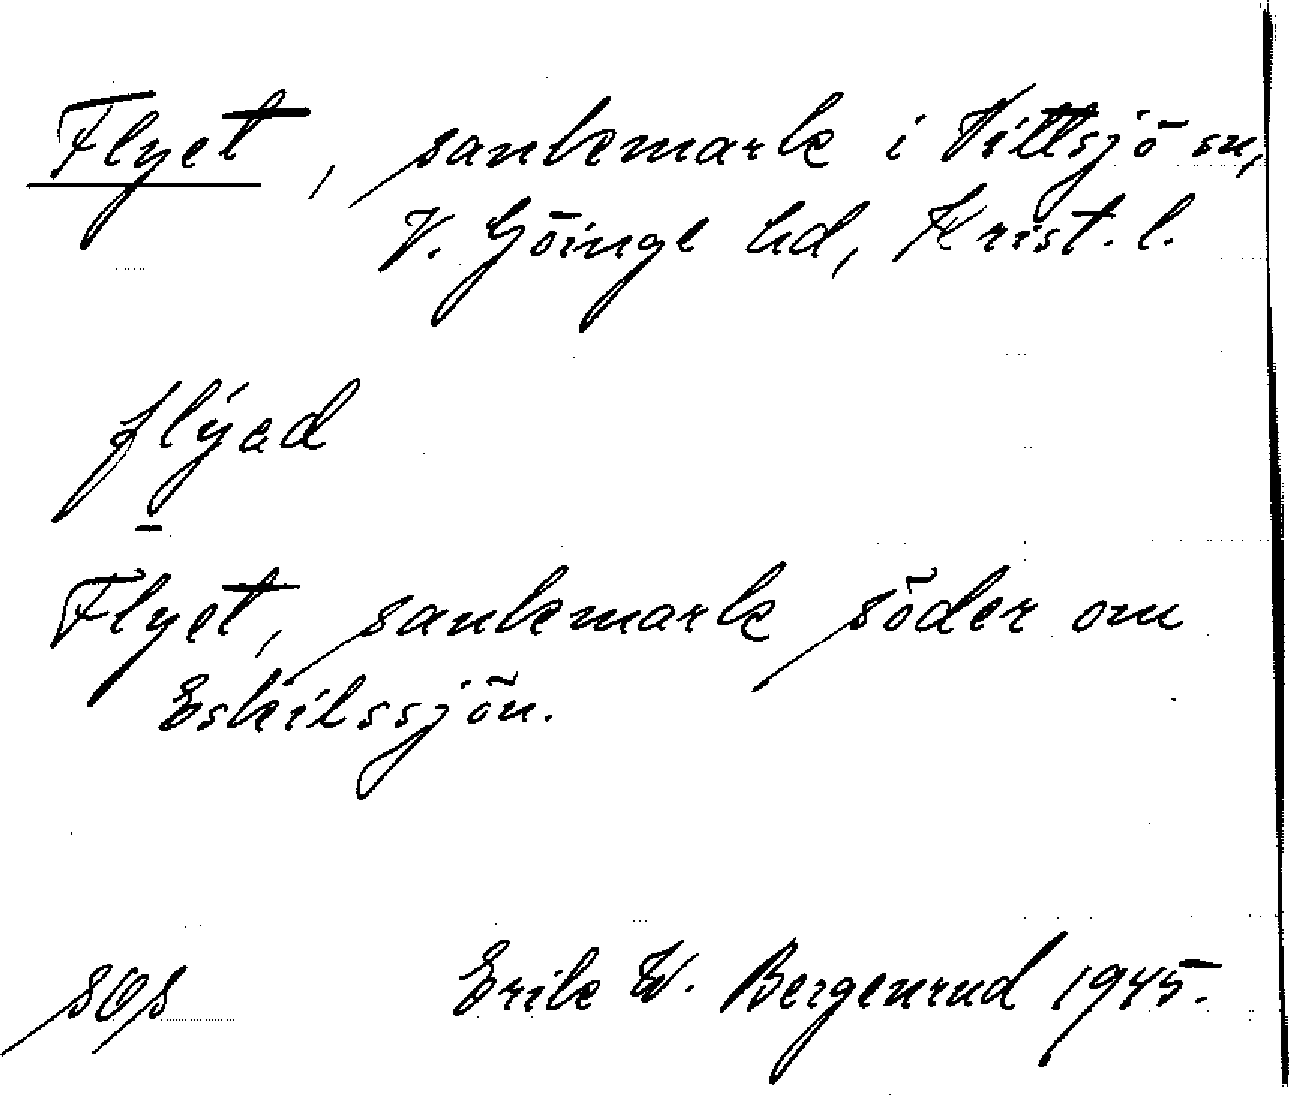 Flyet, sankmark i Vittsjö sn,
V. Göinge hd, Krist. l.
flýad
Flyet, sankmark söder om
Eskilssjön.
Erik W. Bergenrud 1945.